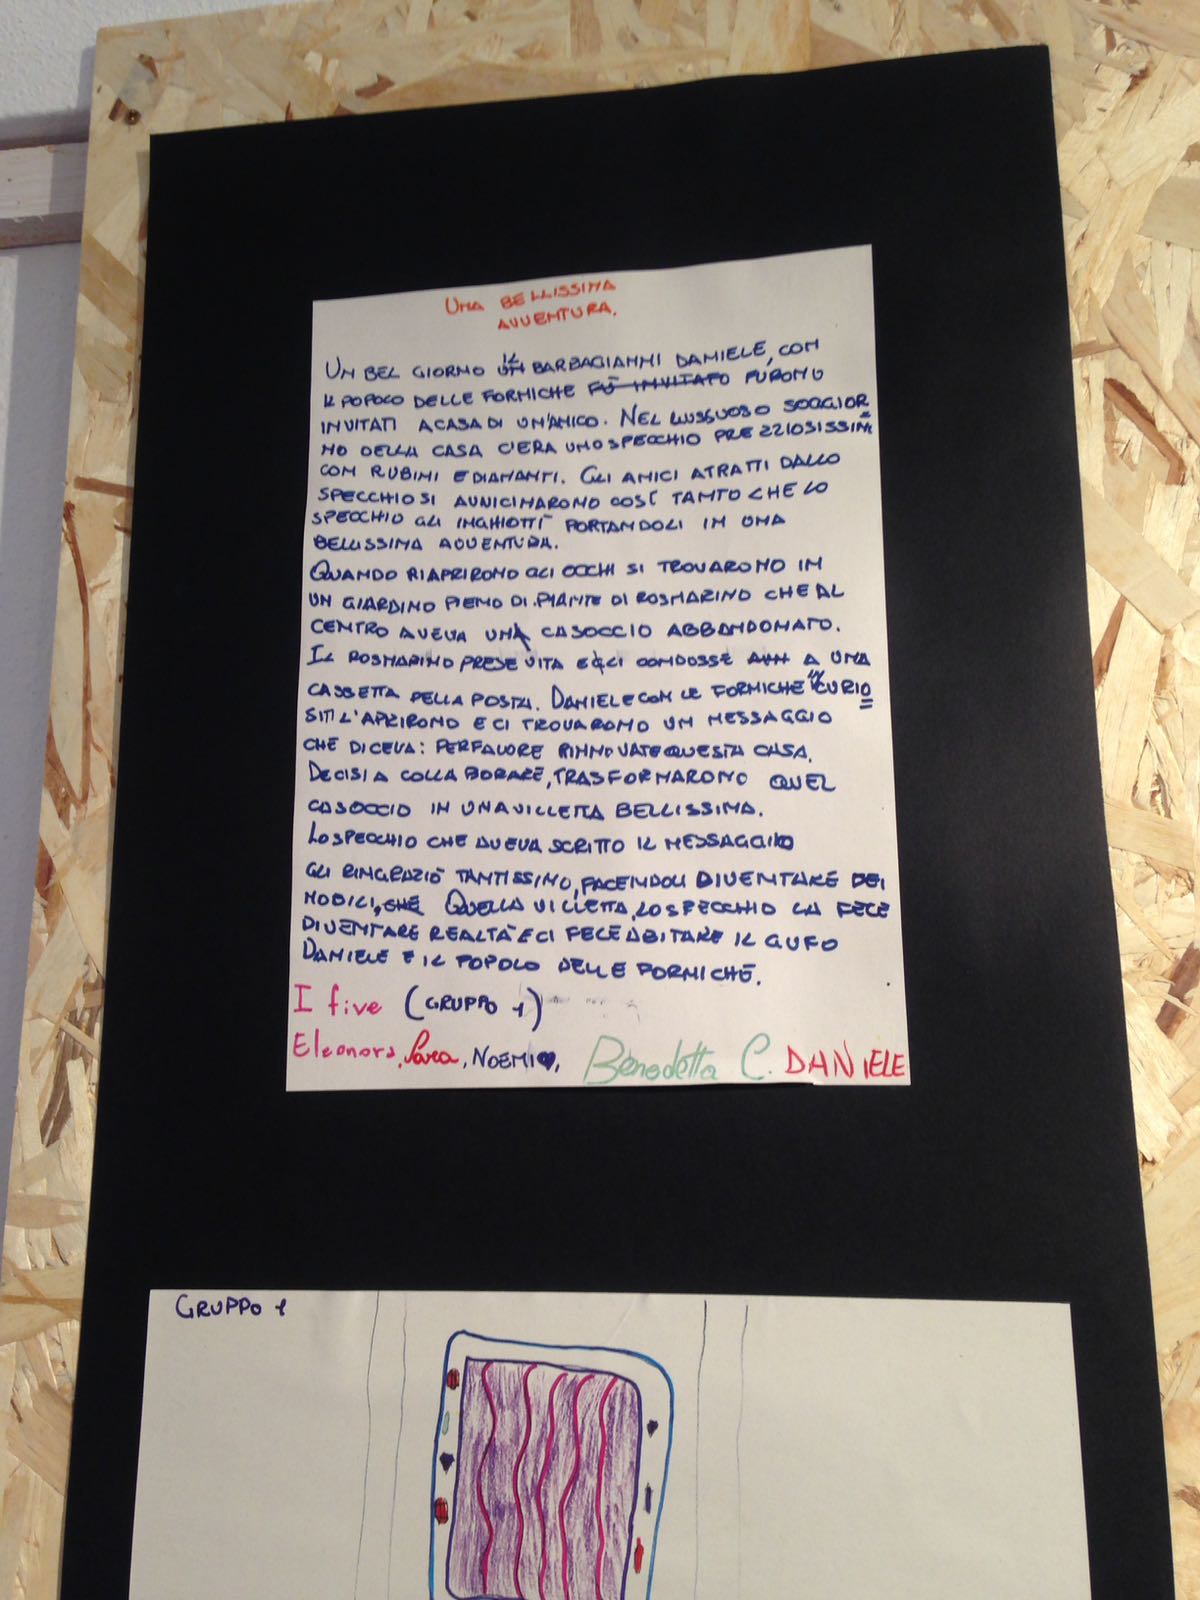 UNA BELLISSIMA
AVVENTURA.
UN BEL GIORNO IL BARBAGIANNI DANIELE, CON
IL POPOLO DELLE FORMICHE FÙ INVITATO FURONO
INVITATI A CASA DI UN'AMICO. NEL LUSSUOSO SOGGIOR=
NO DELLA CASA C'ERA UNO SPECCHIO PREZZIOSISSIM
CON RUBINI E DIAMANTI. GLI AMICI ATRATTI DALLO
SPECCHIO SI AVVICINARONO COSÍ TANTO CHE LO
SPECCHIO GLI INGHIOTTÌ PORTANDOLI IN UNA
BELLISSIMA AVVENTURA.
QUANDO RIAPRIRONO GLI OCCHI SI TROVARONO IN
UN GIARDINO PIENO DI PIANTE DI ROSMARINO CHE AL
CENTRO AVEVA UN CASOCCIO ABBANDONATO.
IL ROSMARINO PRESE VITA E GLI CONDUSSE A UNA
CASSETTA DELLA POSTA. DANIELE CON LE FORMICHE INCURIO=
SITI L'APRIRONO E CI TROVARONO UN MESSAGGIO
CHE DICEVA: PERFAVORE RINNOVATE QUESTA CASA.
DECISI A COLLABORARE, TRASFORMARONO QUEL
CASOCCIO IN UNA VILLETTA BELLISSIMA.
LO SPECCHIO CHE AVEVA SCRITTO IL MESSAGGIO
GLI RINGRAZIÒ TANTISSIMO, FACENDOLI DIVENTARE DEI
NOBILI, CHE QUELLA VILLETTA, LO SPECCHIO LA FECE
DIVENTARE REALTÀ E CI FECE ABITARE IL GUFO
DANIELE E IL POPOLO DELLE FORMICHE.
I five (GRUPPO 1)
Eleonora, Sara, NOEMI, Benedetta C. DANIELE
GRUPPO 1